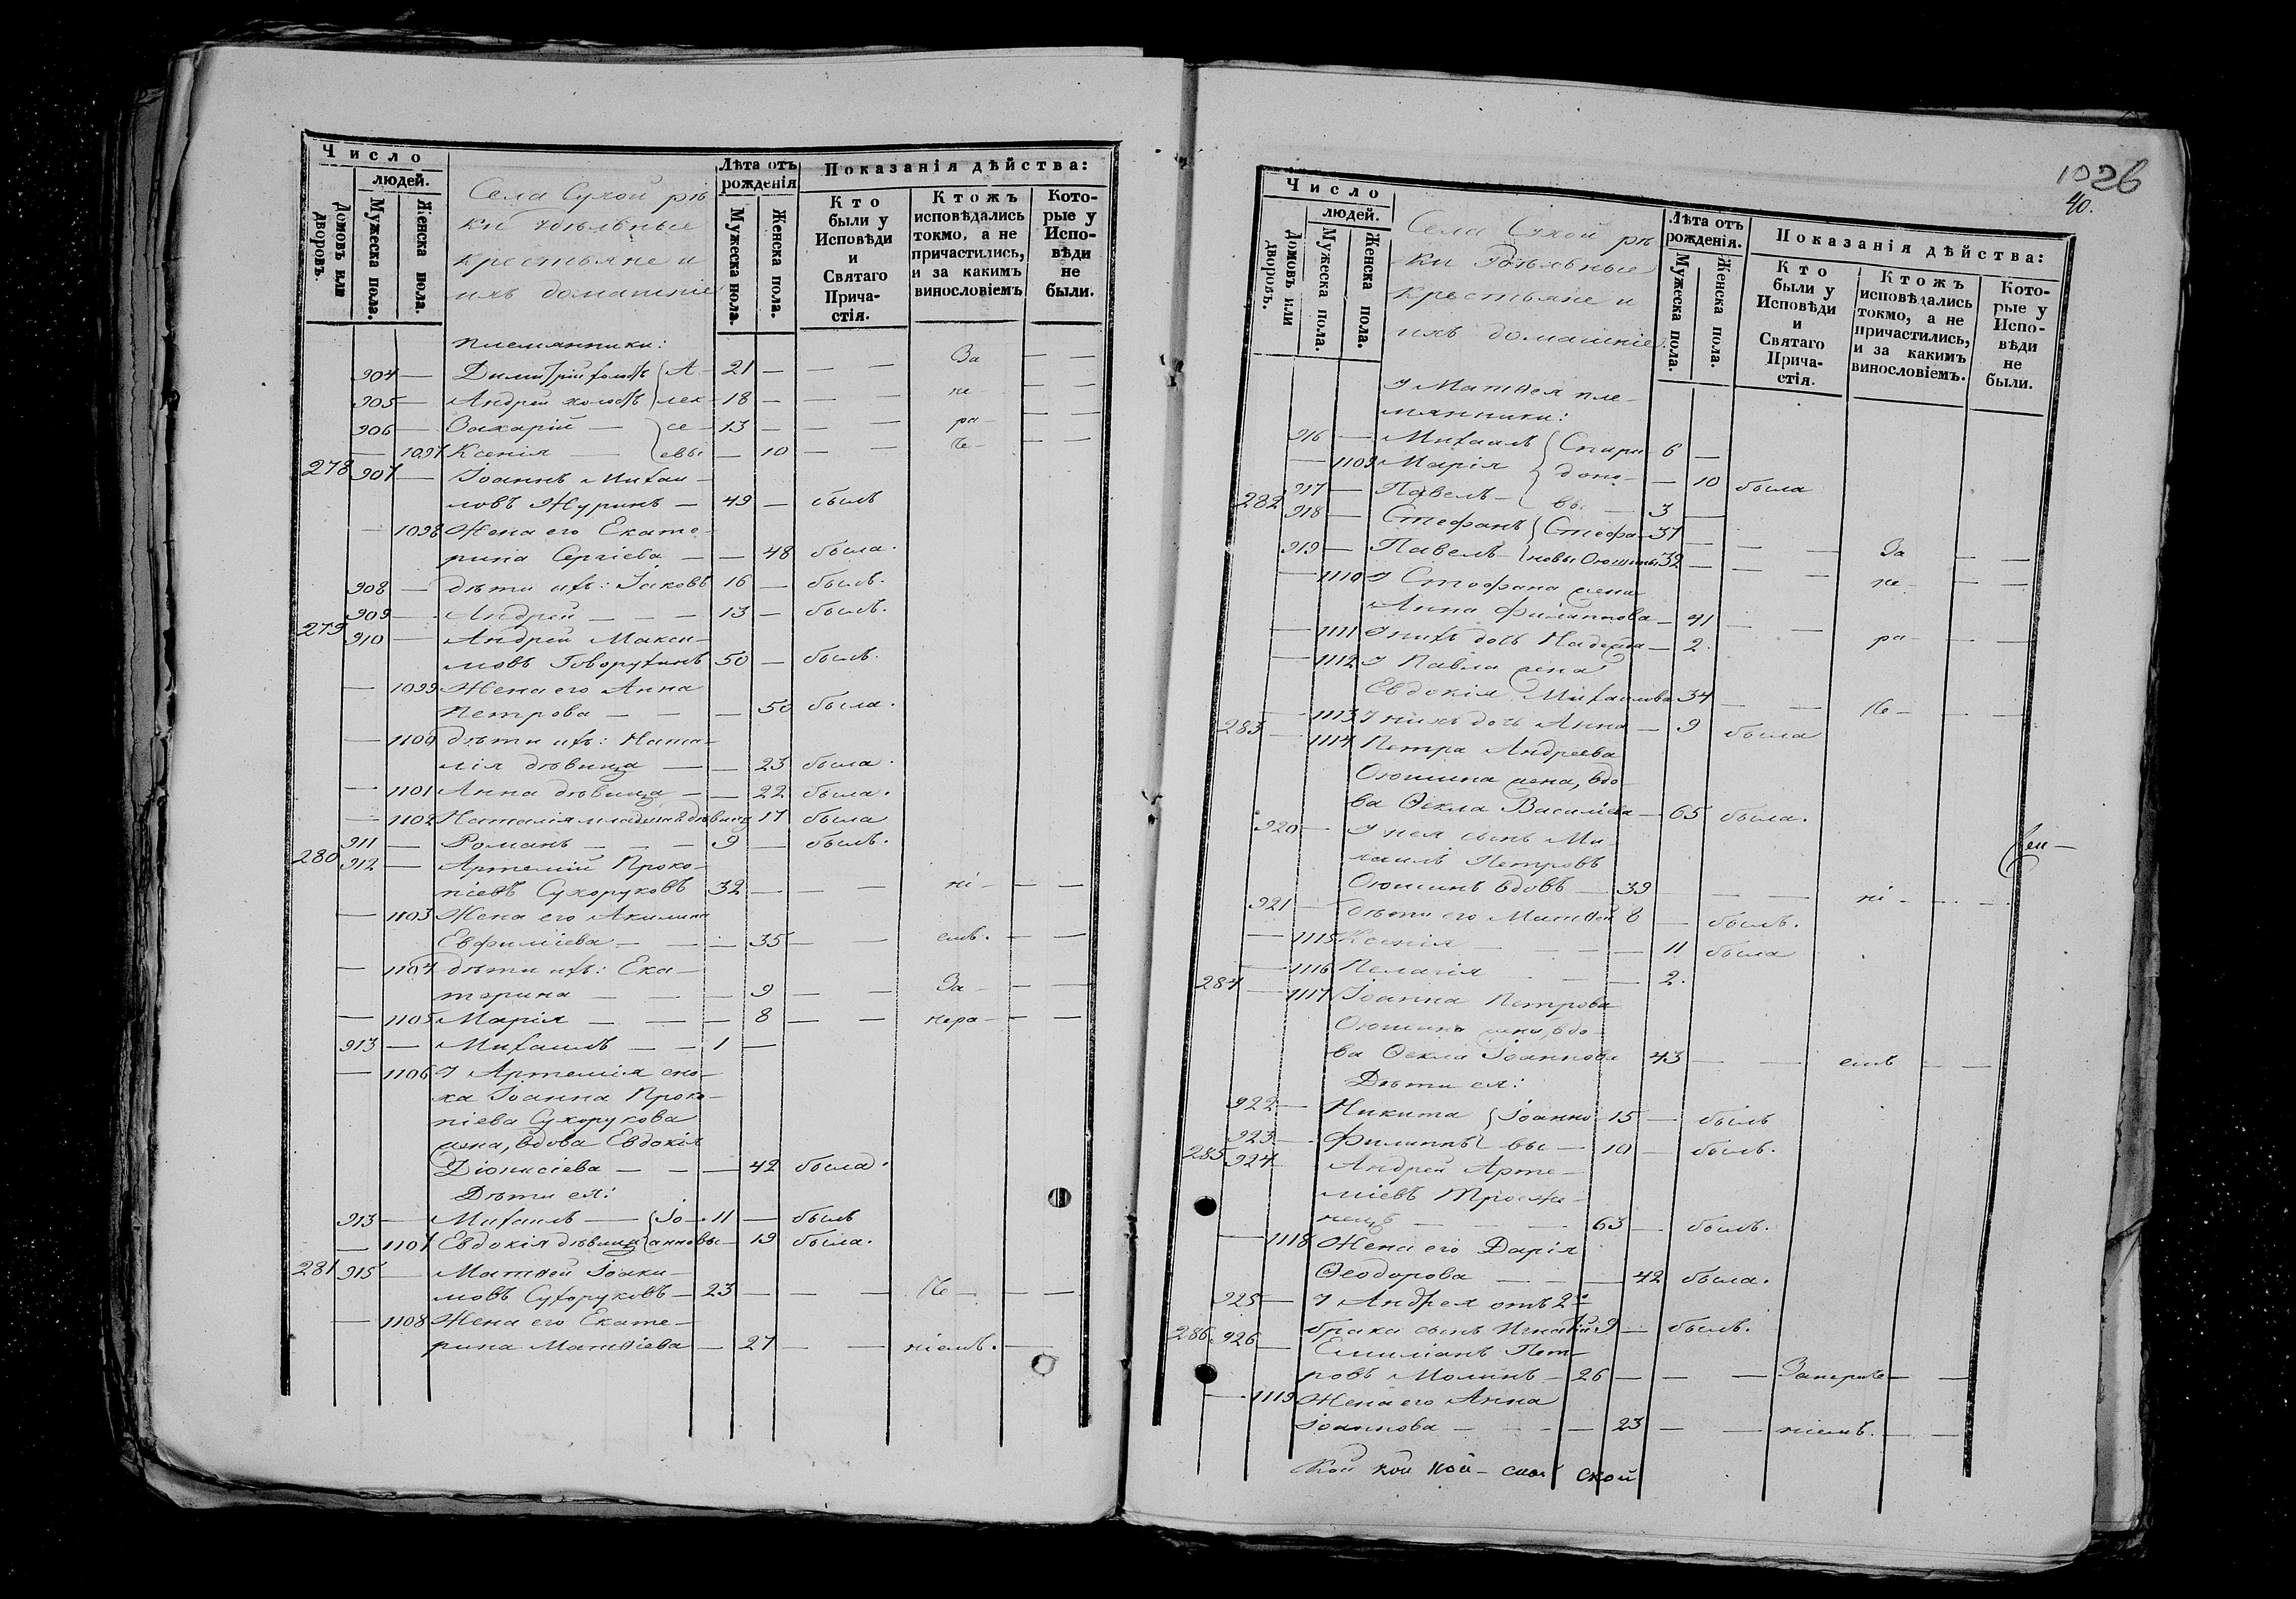 Число
людей.
Домовъ или дворовъ.
Мужеска пола.
Женска пола.
Села Сухой рѣ
ки удѣльные
крестьяне и
ихъ домашніе
Лѣта отъ
рожденія
Мужеска пола.
Женска пола.
Показанія дѣйства:
Кто
были у
Исповѣди
и
Святаго
Прича-
стія.
Ктожъ
исповѣдались
токмо, а не
причастились,
и за какимъ
винословіемъ
Кото-
рые у
Испо-
вѣди
не
были.
племянники:
904 — Димитрій холостъ А- 21 — — — За — —
905 — Андрей холостъ лек- 18 — — — не — —
906 — Захарій — се- 13 — — — ра- — —
— 1097 Ксенія — евы — 10 — — че- — —
278 907 — Іоаннъ Михаи-
ловъ Журинъ — 49 — былъ
— 1098 Жена его Екате-
рина Сергіева — — 48 была.
908 — дѣти ихъ: Іаковъ 16 — былъ.
909 — Андрей — — 13 — былъ.
279 910 — Андрей Макси-
мовъ Говорухинъ 50 — былъ.
— 1099 Жена его Анна
Петрова — — — 50 была.
— 1100 дѣти ихъ: Ната-
лія дѣвица — — 23 была.
— 1101 Анна дѣвица — — 22 была.
— 1102 Наталія младшая дѣвица 17 была
911 — Романъ — — — 9 — былъ.
280 912 — Артемій Проко-
піевъ Сухоруковъ 32 — — — ні- — —
— 1103 Жена его Акилина
Евфиміева — — — 35 — — емъ. — —
— 1104 дѣти ихъ: Ека-
терина — — — 9 — — За- — —
— 1105 Марія — — — 8 — — нера- — —
913 — Михаилъ — — 1 —
— 1106 У Артемія сно-
ха Іоанна Проко-
піева Сухорукова
жена, вдова Евдокія
Діонисіева — — — 42 была.
Дѣти ея:
913 — Михаилъ — Іо- 11 — былъ
— 1107 Евдокія дѣвица анновы — 19 была.
281 915 — Матѳей Іоаки-
мовъ Сухоруковъ — 23 — — — че — — —
— 1108 Жена его Екате-
рина Матѳіева — 27 — — ніемъ. —
1026
40.
Число
людей.
Домовъ или дворовъ.
Мужеска пола.
Женска пола.
Села Сухой рѣ
ки Удѣльные
крестьяне и
ихъ домашніе.
Лѣта отъ
рожденія.
Мужеска пола.
Женска пола.
Показанія дѣйства:
Кто
были у
Исповѣди
и
Святаго
Прича-
стія.
Ктожъ
исповѣдались
токмо, а не
причастились,
и за какимъ
винословіемъ.
Кото-
рые у
Испо-
вѣди
не
были.
У Матѳея пле-
мянники:
916 — Михаилъ Спири- 6 —
— 1109 Марія доно- — 10 была
917 — Павелъ — вы — 3 —
282 918 — Стефанъ Стефа- 37 — — — За — —
919 — Павелъ — новы Оюшины 32 — — — не — —
— 1110 У Стефана жена
Анна Филиппова — 41 — —
— 1111 У нихъ дочь Надежда — 2. ра- — —
— 1112 У Павла жена
Евдокія Михаилова 34 — — че- — —
— 1113 У нихъ дочь Анна — 9 была
283 — 1114 Петра Андреева
Оюшина жена, вдо-
ва Ѳекла Василіева — 65 была.
920 — У нея сынъ Ми-
хаилъ Петровъ
Оюшинъ вдовъ — 39 — — ні- — —
921 — дѣти его Матѳей 8 — былъ.
— 1115 Ксенія — — — 11 была
— 1116 Пелагія — — — 2.
284 — 1117 Іоанна Петрова
Оюшина жена, вдо-
ва Ѳекла Іоаннова 43 — — емъ — —
Дѣти ея:
922 — Никита Іоанно- 15 — былъ
923 — Филиппъ вы — 10 — былъ.
285 924 — Андрей Арте-
міевъ
— — — 63 — былъ.
— 1118 Жена его Дарія
Ѳеодорова — — — 42 была.
925 — У Андрея отъ 2го
брака сынъ Игнатій 9 — былъ.
286 926 — Емиліанъ Пет-
ровъ Молинъ — 26 — — — Занераче — —
— 1119 Жена его Анна
Іоаннова — — — 23 — — ніемъ. — —
кой ской